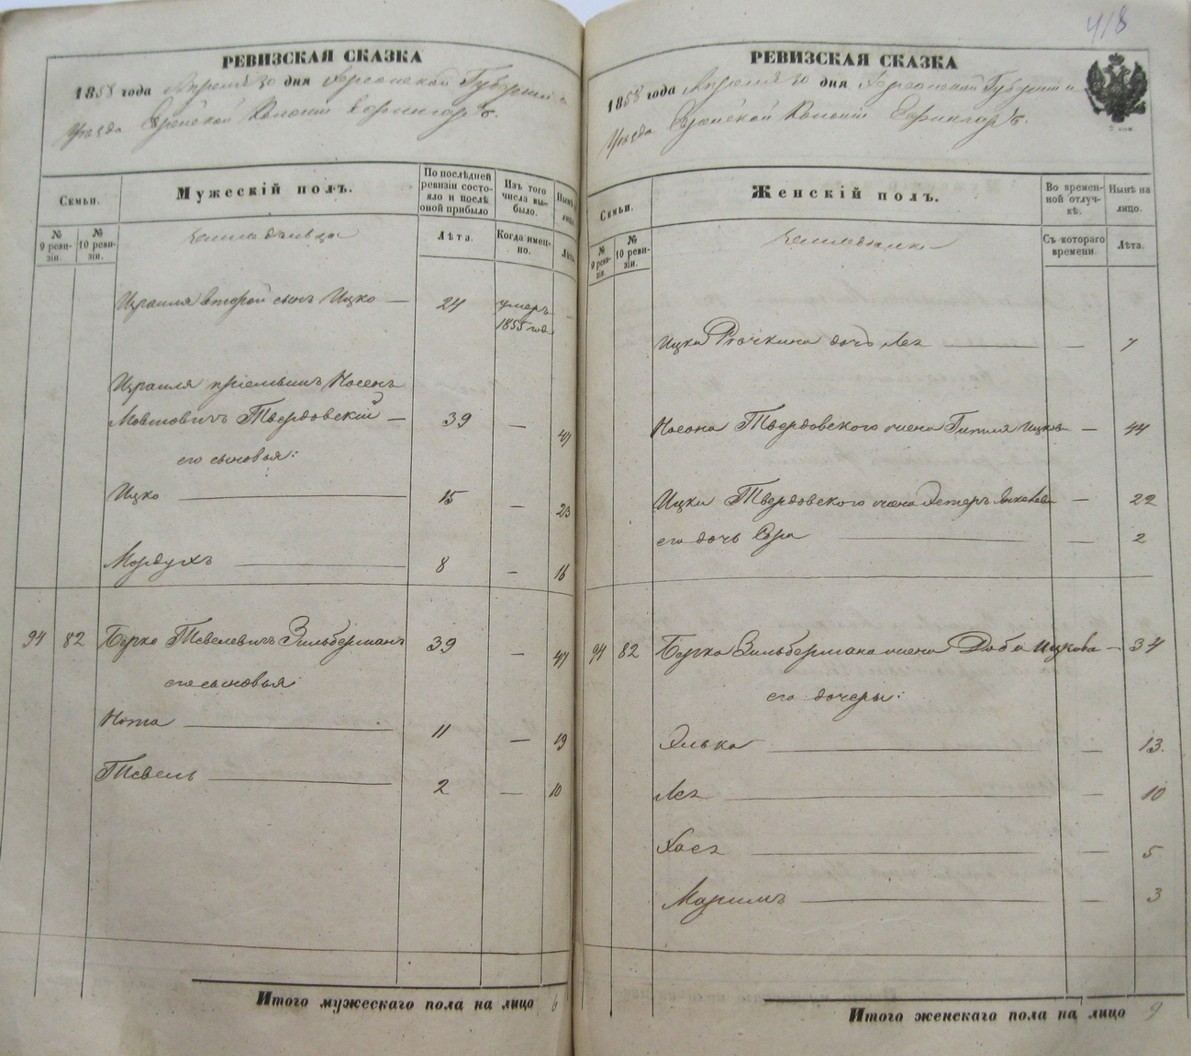 РЕВИЗСКАЯ СКАЗКА
1858 года Апреля 30 дня Херсонской Губернии
Уезда Еврейской Колонии Ефингарь.
Семьи.
Мужескій полъ.
По последней ревизіи состояло и послѣ оной прибыло
Изъ того числа выбыло.
Нынѣ на лицо.
№ 9 ревизіи.
№ 10 ревизіи.
земледельцы
Лѣта.
Когда именно.
Лѣта.
Израиля второй сынъ Ицко — 24 умеръ 1855 года —
Израиля пріемышъ Носонъ
Мовшовичъ Твердовскій — 39 — 47
его сыновья:
Ицко 15 — 23
Мордухъ 8 — 16
94 82 Борко Тевелевичъ Зильберманъ 39 — 47
его сыновья
Нота 11 — 19
Тевель 2 — 10
Итого мужескаго пола на лицо 6
418
РЕВИЗСКАЯ СКАЗКА
1858 года Апреля 30 дня Херсонской Губерніи
Уезда Еврейской Колоніи Ефингарь.
Семьи.
Женскій полъ.
Во временной отлучкѣ.
Нынѣ на лицо.
№ 9 ревизіи.
№ 10 ревизіи.
Съ котораго времени.
Лѣта.
Ицки дочь Лея — 7
Носона Твердовского жена Гитля Ицкова — 44
Ицки Твердовского жена Эстеръ — 22
его дочь Сора — 2
94 82 Борка Зильбермана жена Доба Ицкова — 34
его дочери:
Элька — 13.
Лея — 10
Хася — 5
Маримъ — 3
Итого женскаго пола на лицо 9